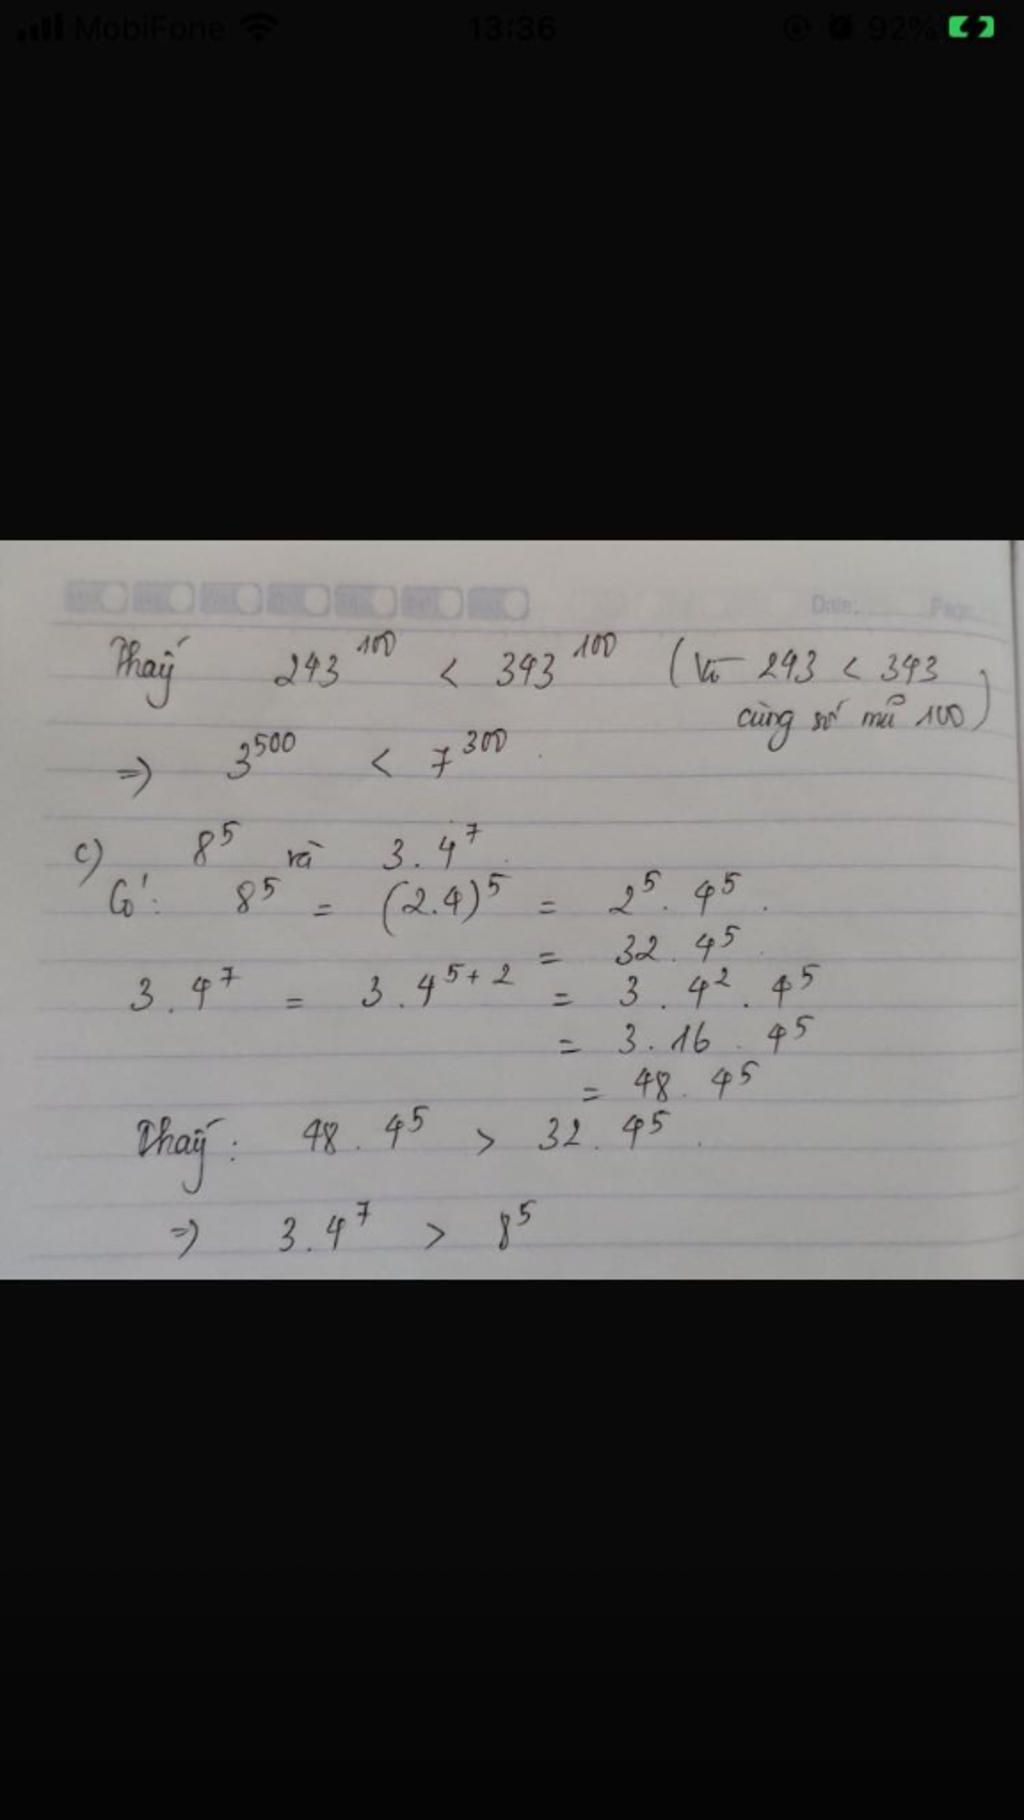 MobiFone 13:36 92%
Thấy 243^100 < 343^100 (Vì 243 < 343
cùng số mũ 100)
=> 3^500 < 7^300.
c) 8^5 và 3.4^7.
Có: 8^5 = (2.4)^5 = 2^5 . 4^5.
= 32 . 4^5.
3.4^7 = 3.4^5+2 = 3 . 4^2 . 4^5
= 3.16 . 4^5
= 48 . 4^5
Thấy: 48 . 4^5 > 32 . 4^5.
=> 3.4^7 > 8^5
Date: Page: